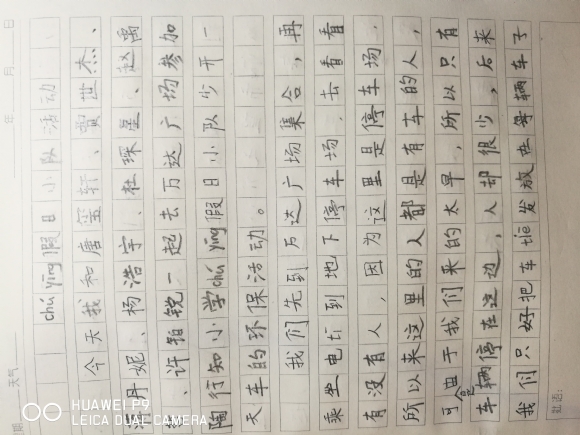 期 天气 年 月 日
chú yīng 假日小队活动
今天我和唐笠轩、黄世杰、
丹妮、杨浩宇、杜琛星、赵禹
、许铂锐一起去万达广场参加
行知小学chú yīng假日小队少开一
天车的环保活动。
我们先到万达广场集合，再
乘坐电ti到地下停车场，去看看
有没有人，因为这里是停车场，
所以来这里的人都是有车的人，
可由于我们来的太早，所以只有
车辆停在这边，人却很少，后来
我们只好把车tiē发放在每辆车子
HUAWEI P9
LEICA DUAL CAMERA